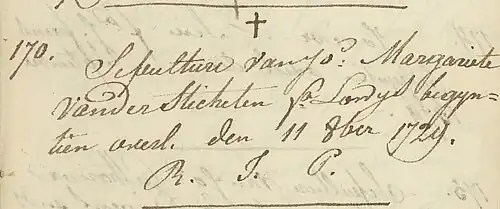 ✝
170.
Sepulture van Jo.ᵉ Margariete
vander Stichelen fᵃ Lowys begyn-
tien overl. den 11 8ber 1729.
R. I. P.